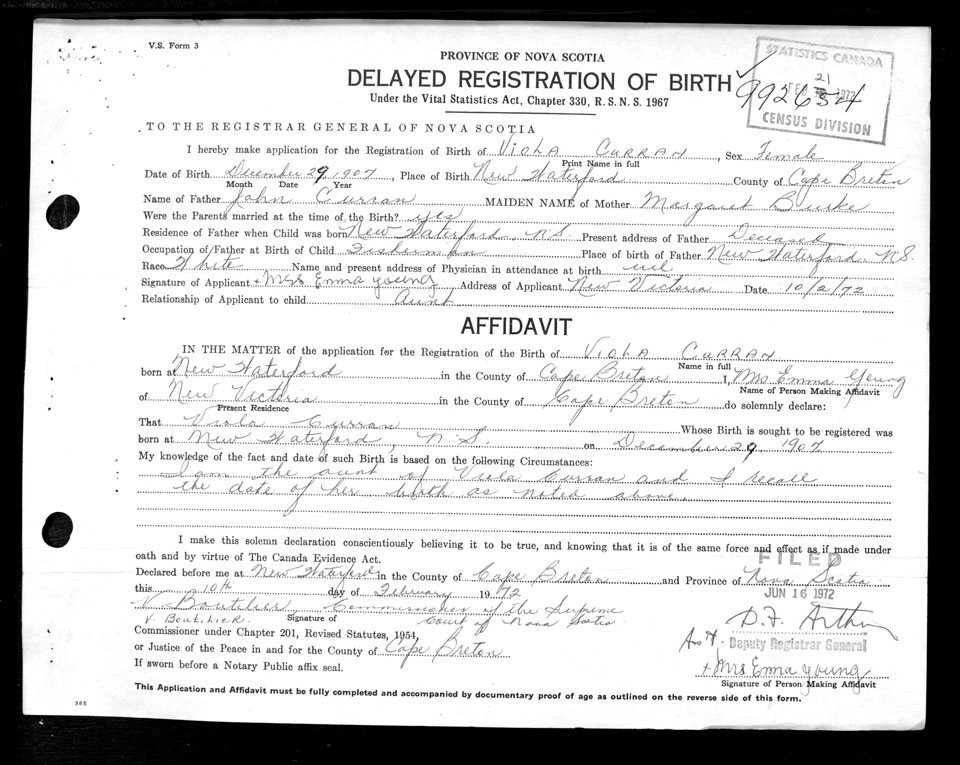 V.S. Form 3
PROVINCE OF NOVA SCOTIA
DELAYED REGISTRATION OF BIRTH
Under the Vital Statistics Act, Chapter 330, R.S.N.S. 1967
STATISTICS CANADA
FEB 21 1972
992654
CENSUS DIVISION
TO THE REGISTRAR GENERAL OF NOVA SCOTIA
I hereby make application for the Registration of Birth of VIOLA CURRAN, Sex Female
Print Name in full
Date of Birth December 29, 1907, Place of Birth New Waterford County of Cape Breton
Month Date Year
Name of Father John Curran MAIDEN NAME of Mother Margaret Burke
Were the Parents married at the time of the Birth? yes
Residence of Father when Child was born New Waterford, N.S. Present address of Father Deceased
Occupation of Father at Birth of Child Fisherman Place of birth of Father New Waterford, N.S.
Race White Name and present address of Physician in attendance at birth
Signature of Applicant + Mrs Emma young Address of Applicant New Victoria Date 10/2/72
Relationship of Applicant to child Aunt
AFFIDAVIT
IN THE MATTER of the application for the Registration of the Birth of VIOLA CURRAN
Name in full
born at New Waterford in the County of Cape Breton I, Mrs Emma Young
Name of Person Making Affidavit
of New Victoria in the County of Cape Breton do solemnly declare:
Present Residence
That Viola Curran Whose Birth is sought to be registered was
born at New Waterford, N.S. on December 29 1907
My knowledge of the fact and date of such Birth is based on the following Circumstances:
I am the aunt of Viola Curran and I recall
the date of her birth as noted above.
I make this solemn declaration conscientiously believing it to be true, and knowing that it is of the same force and effect as if made under
oath and by virtue of The Canada Evidence Act.
FILED
Declared before me at New Waterford in the County of Cape Breton and Province of Nova Scotia
this 10th day of February 1972
JUN 16 1972
V Boutilier, Commissioner of the Supreme
V. Signature of Court of Nova Scotia
Commissioner under Chapter 201, Revised Statutes, 1954,
or Justice of the Peace in and for the County of Cape Breton
If sworn before a Notary Public affix seal.
D.F. Arthur
Deputy Registrar General
+ Mrs Emma young
Signature of Person Making Affidavit
This Application and Affidavit must be fully completed and accompanied by documentary proof of age as outlined on the reverse side of this form.
385